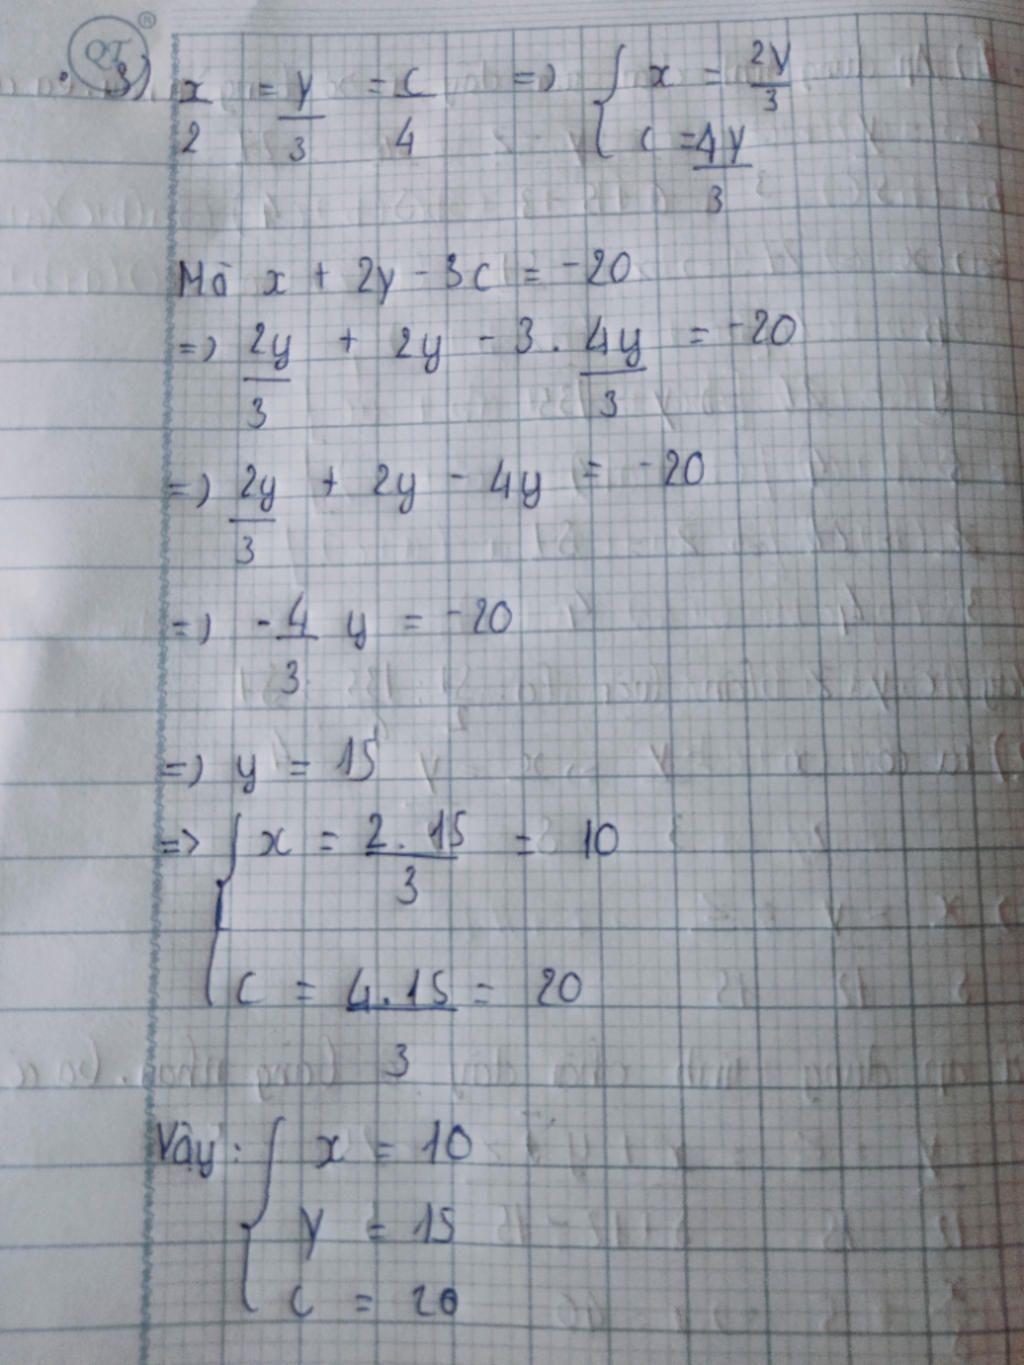 QT ®
3) x/2 = y/3 = c/4 => { x = 2y/3
c = 4y/3
Mà x + 2y - 3c = -20
=> 2y/3 + 2y - 3 . 4y/3 = -20
=> 2y/3 + 2y - 4y = -20
=> -4/3 y = -20
=> y = 15
=> { x = 2.15/3 = 10
c = 4.15/3 = 20
Vậy : { x = 10
y = 15
c = 20